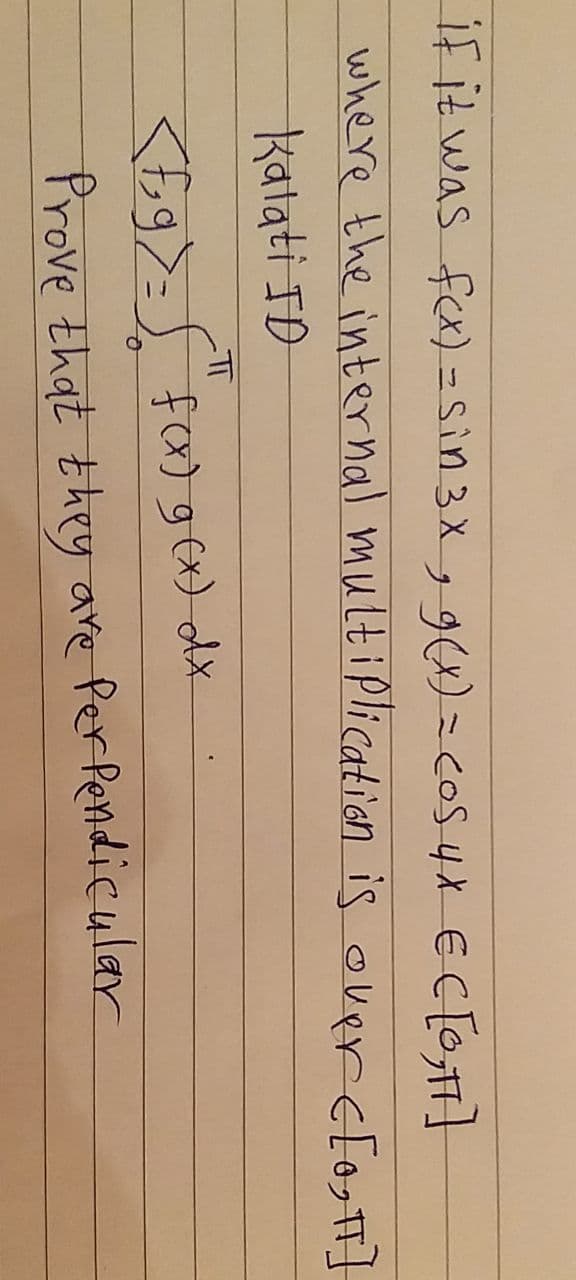 if it was f(x) = sin 3x , g(x) = cos 4x ∈ C[0,π]
where the internal multiplication is over C[0,π]
kalati ID
<f,g> = ∫₀^π f(x) g(x) dx .
Prove that they are Perpendicular